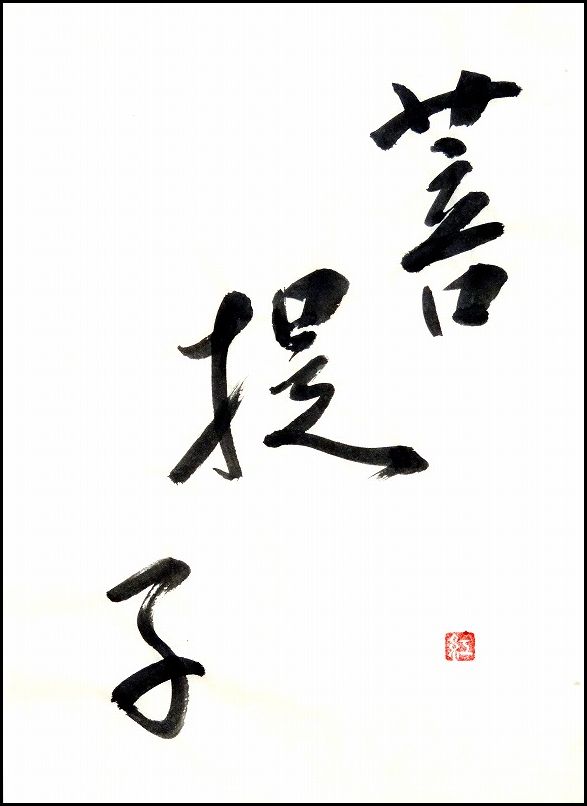 菩
提
子
紅